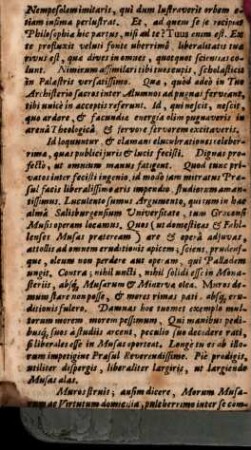 Nempe solem imitaris, qui dum lustraverit orbem e-
tiam insima perlustrat. Et, ad quem se je reciperet
Philosophia hic partus, nisi ad te? Tuus enim est. Ex
te profluxit veluti fonte uberrimo liberalitatis tuæ
rivus est, qua dives in omnes, quotquot scientias co-
lunt. Nimirum assimilari tibi tuus cupis, scholasticis
in Palæstris versatissimo. Qua, quod adeò in Tuo
Archisterio sacros inter Alumnos ad pugnas ferveant,
tibi unicè in acceptis referunt. Id, qui nescit, nesciet,
quo ardore, & facundiæ energia olim pugnaveris in
arenâ Theologicâ & fervore fervorem excitaveris.
Id loquuntur, & clamant elucubrationes celeber-
rimæ, quas publici juris & lucis fecisti. Dignas pro-
fectò, ut omnium manus fatigent. Quod tunc pri-
vatus inter fecisti ingenio, id modò jam mitratus Præ-
sul facis liberalissimo æris impendio, studiorum aman-
tissimus. Luculento sumus Argumento, qui tum in hac
almâ Salisburgensium Universitate, tum Grisonis
Musis operam locamus. Quos (ut domesticas & Eth-
lenses Musas præteream) ære & operâ adjuvas,
attollis ad summum eruditionis apicem; sciens, prudensq́;
que, oleum non perdere aut operam, qui Palladem
ungit. Contra; nihil uncti, nihil solidi esse in Mona-
steriis, absq́; Musarum & Minerva olea. Muros do-
mum stare non posse, & mores rimas pati, absq́; eru-
ditionis fulcro. Damnas hoc tuomet exemplo mul-
torum morem morem pessimum. Qui manibus pedi-
busq́; suos à studiis arcent, peculio suo decedere rati,
si liberales esse in Musas oporteat. Longè tu es ab illo-
rum impetigine Præsul Reverendissime. Piè prodigis,
utiliter dispergis, liberaliter largiris, ut largiendo
Musas alas.
Muros struis; ausim dicere, Morum Musa-
rum ac Virtutum domicilia, pulcherrimo inter se com-